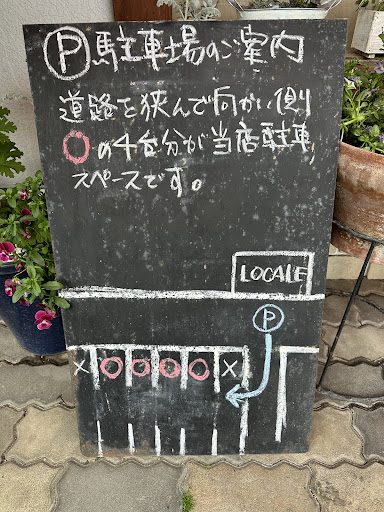 Ⓟ駐車場のご案内
道路を挟んで向かい側
○の4台分が当店駐車
スペースです。
LOCALE
Ⓟ
X ○ ○ ○ ○ X